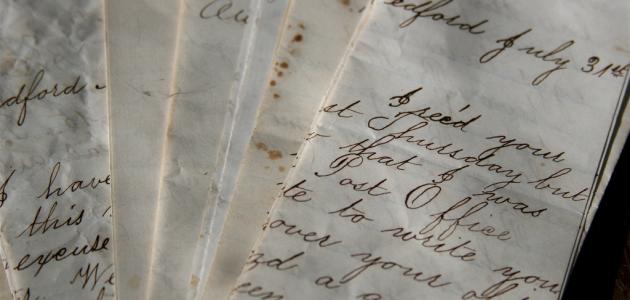 dford -
I have
this
excuse
We
Au
edford July 31st
I rec'd your
st Thursday but
that I was
Post Office
te to write you
over your